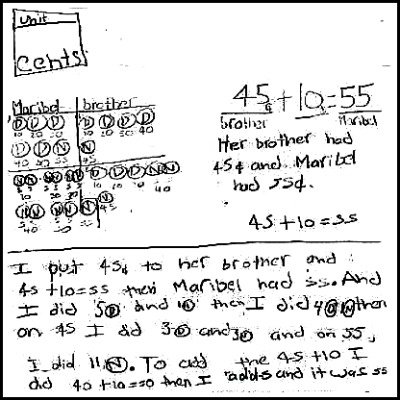 Unit
Cents
Maribel brother
D D D D D D D
10 20 30 40
D D N N
40 50 55 45
N N N N N D D D D N N
40
N N N N N N
40 50 55 45
45¢ + 10 = 55
brother Maribel
Her brother had
45¢ and Maribel
had 55¢.
45 + 10 = 55
I put 45¢ to her brother and
45 + 10 = 55 then Maribel had 55. And
I did 5 D and then I did 4 D N then
on 45 I did 3 D and and on 55,
I did 11 N. To add the 45 + 10 I
did 40 + 10 = 50 then I add 5 and it was 55